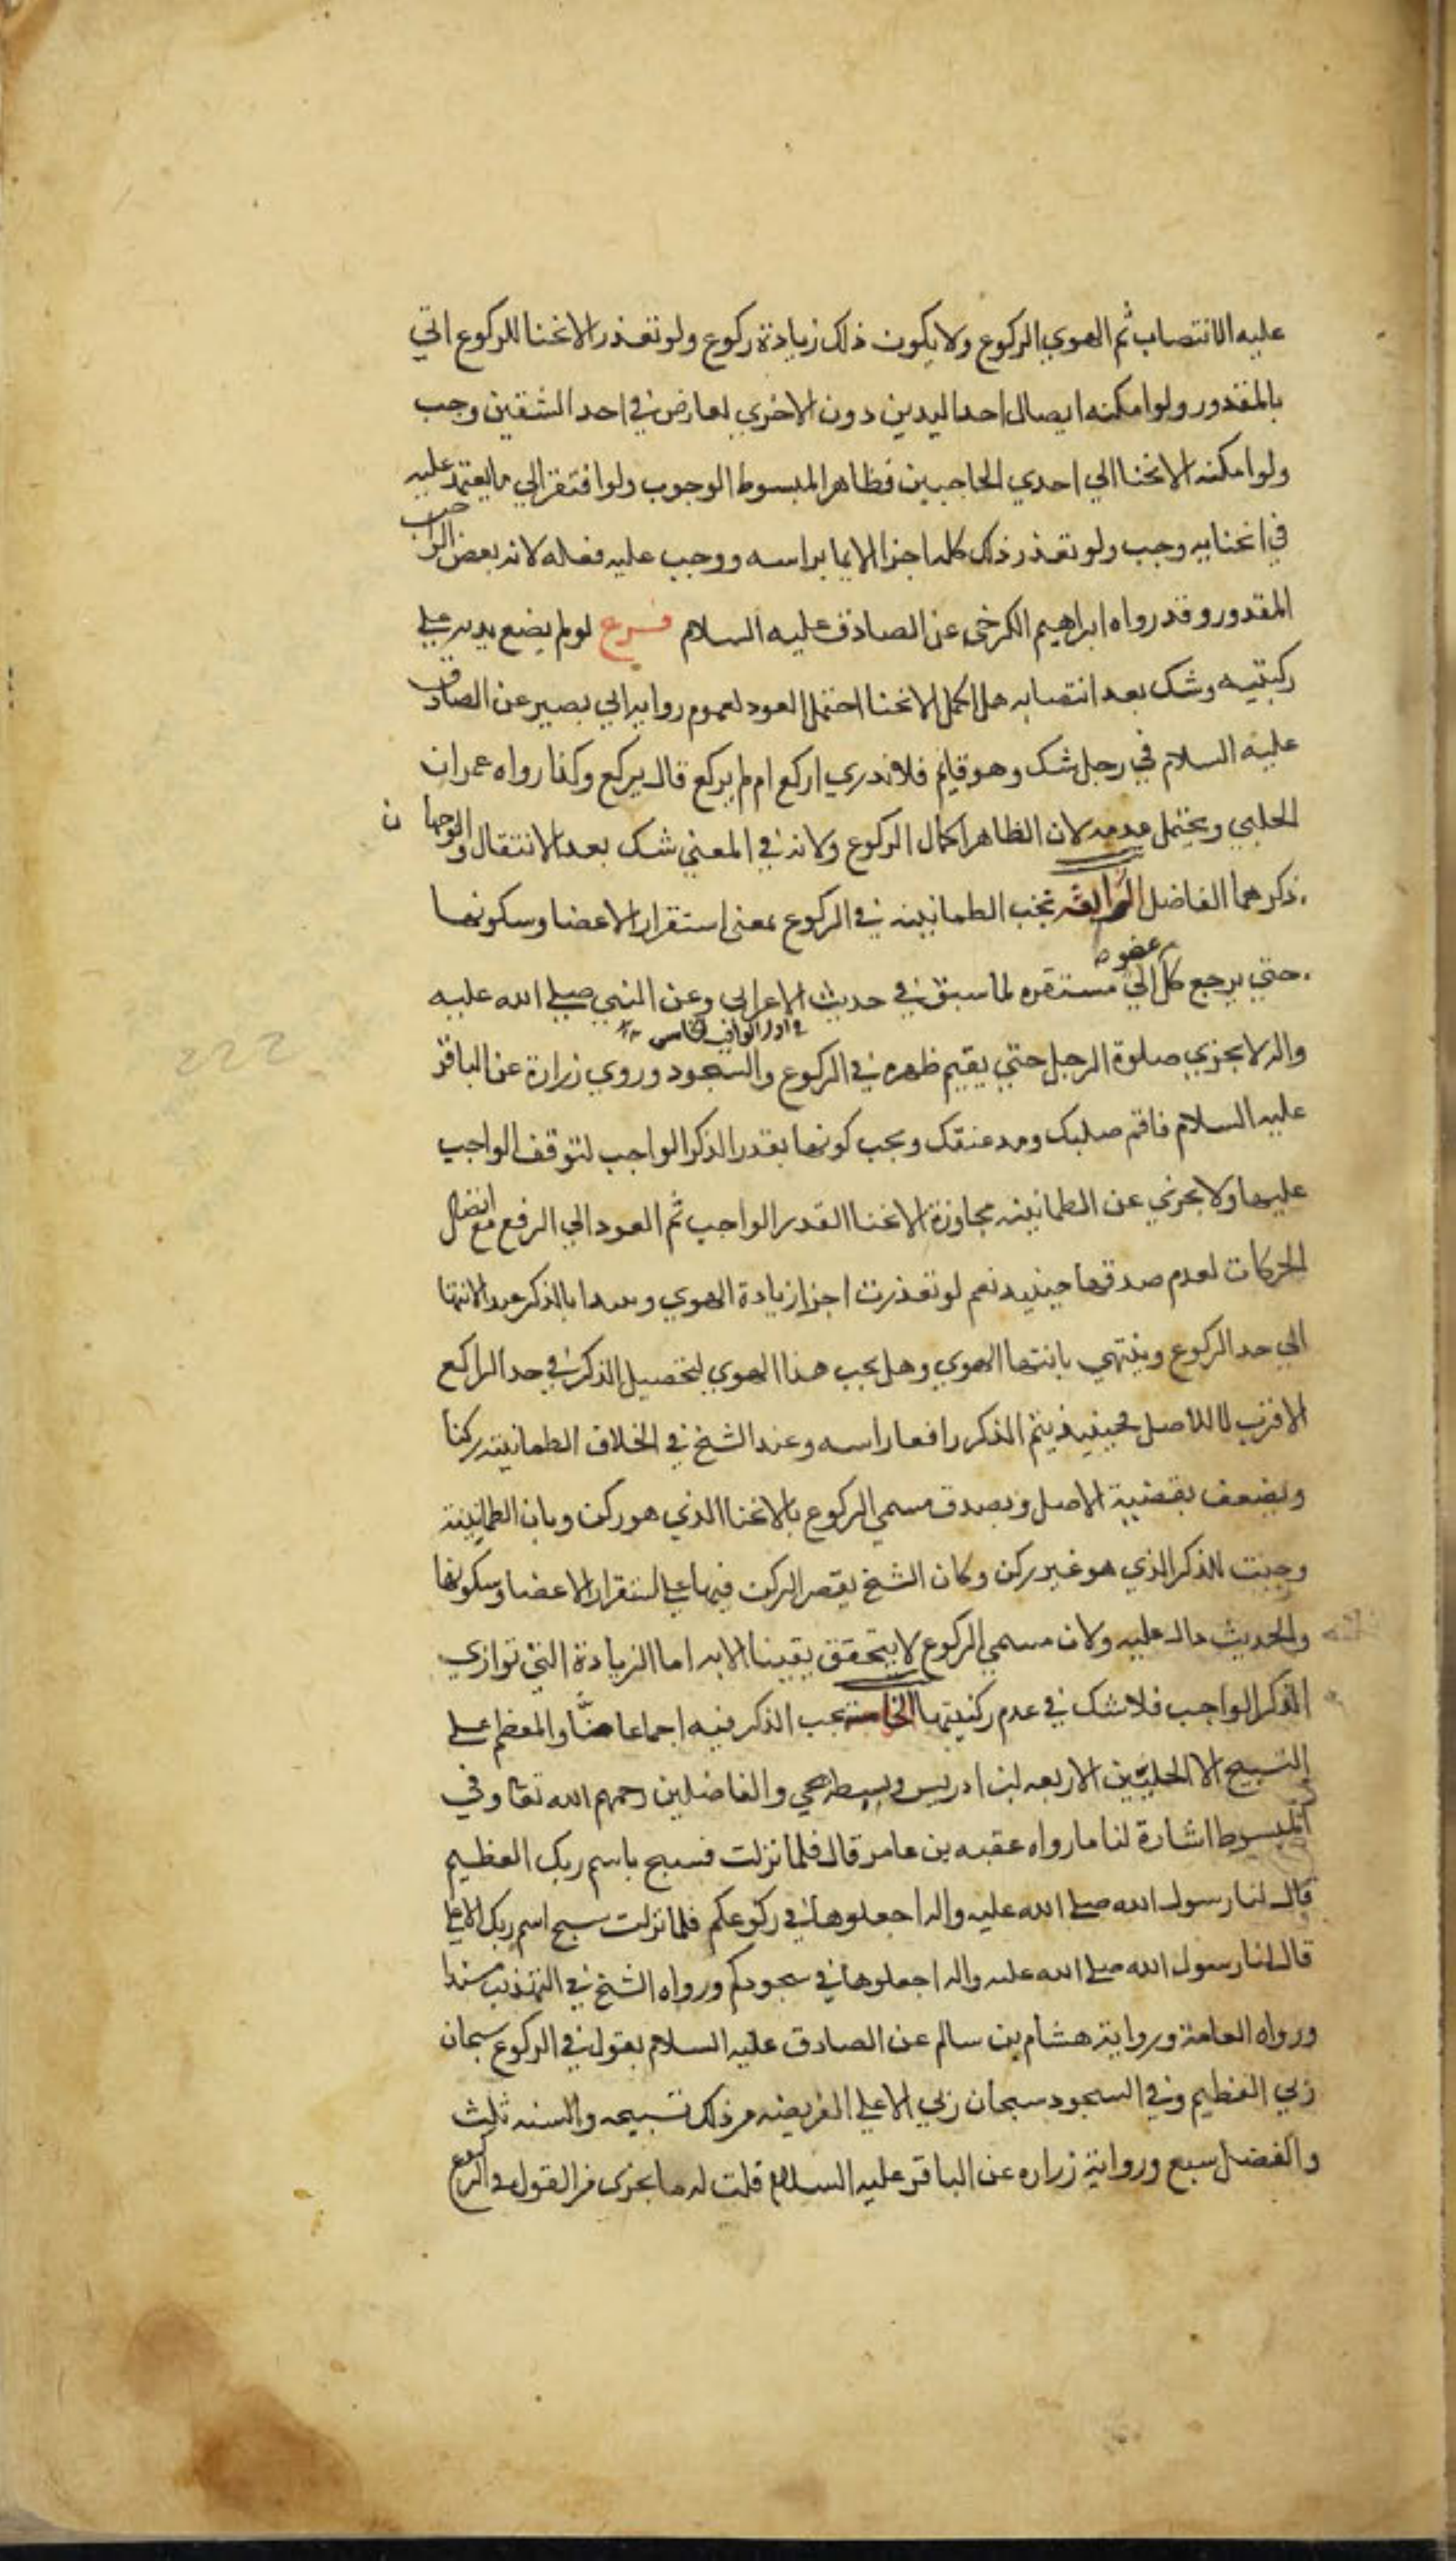 عليه الانتصاب ثم الهوي الركوع ولا يكون ذلك زيادة ركوع ولو تعذر الانحنا للركوع اتي
بالمقدور ولو امكنه ايصال احد اليدين دون الاخري لعارض في احد الشقين وجب
ولو امكنه الانحنا الي احدي الجانبين فظاهر المبسوط الوجوب ولو افتقر الي ما يعتمد عليه
في انحنايه وجب ولو تعذر ذلك كله اجزا الايما براسه ووجب عليه فعله لانه بعض الواجب
المقدور وقد رواه ابراهيم الكرخي عن الصادق عليه السلام فرع لو لم يضع يديه علي
ركبتيه وشك بعد انتصابه هل اكمل الانحنا احتمل العود لعموم رواية ابي بصير عن الصادق
عليه السلام في رجل شك وهو قايم فلا ندري اركع ام لم يركع قال يركع وكذا رواه عمران
الحلبي ويحتمل عدمه لان الظاهر اكمال الركوع ولانه في المعني شك بعد الانتقال والوجهان
ذكرهما الفاضل الرابعه تجب الطمانينه في الركوع بمعني استقرار الاعضا وسكونها
حتي يرجع كل عضو الي مستقره لما سبق في حديث الاعرابي وعن النبي صلي الله عليه
واله لا يجزي صلوة الرجل حتي يقيم ظهره في الركوع والسجود وروي زرارة عن الباقر
عليه السلام فاقم صلبك ومد عنقك ويجب كونها بقدر الذكر الواجب لتوقف الواجب
عليها ولا يجزي عن الطمانينه مجاوزة الانحنا القدر الواجب ثم العود الي الرفع مع اتصال
الحركات لعدم صدقها حينيذ نعم لو تعذرت اجزا زيادة الهوي ويبدا بالذكر عند الانتها
الي حد الراكع وينتهي بانتها الهوي وهل يجب هذا الهوي لتحصيل الذكر في حد الراكع
الاقرب لا للاصل فحينيذ يتم الذكر رافعا راسه وعند الشيخ في الخلاف الطمانينه ركنا
ويضعف بقضية الاصل وبصدق مسمي الركوع بالانحنا الذي هو ركن وبان الطمانينة
وجبت للذكر الذي هو غير ركن وكان الشيخ يقصر الركن فيها علي استقرار الاعضا وسكونها
والحديث دال عليه ولان مسمي الركوع لا يتحقق يقينا الا به اما الزيادة التي توازي
الذكر الواجب فلا شك في عدم ركنيتها الخامسة يجب الذكر فيه اجماعا منا والمعظم علي
التسبيح الا الحليين الاربعه ابن ادريس وسبطه يحي والفاضلين رحمهم الله تعا وفي
المبسوط اشارة لنا ما رواه عقبه بن عامر قال فلما نزلت فسبح باسم ربك العظيم
قال لنا رسول الله صلي الله عليه واله اجعلوها في ركوعكم فلما نزلت سبح اسم ربك الاعلي
قال لنا رسول الله صلي الله عليه واله اجعلوها في سجودكم ورواه الشيخ في التهذيب مسندا
ورواه العامة ورواية هشام بن سالم عن الصادق عليه السلام يقول في الركوع سبحان
ربي العظيم وفي السجود سبحان ربي الاعلي الفريضه من ذلك تسبيحه والسنه ثلث
والفضل سبع ورواية زراره عن الباقر عليه السلام قلت له ما يجزي من القول في الركوع